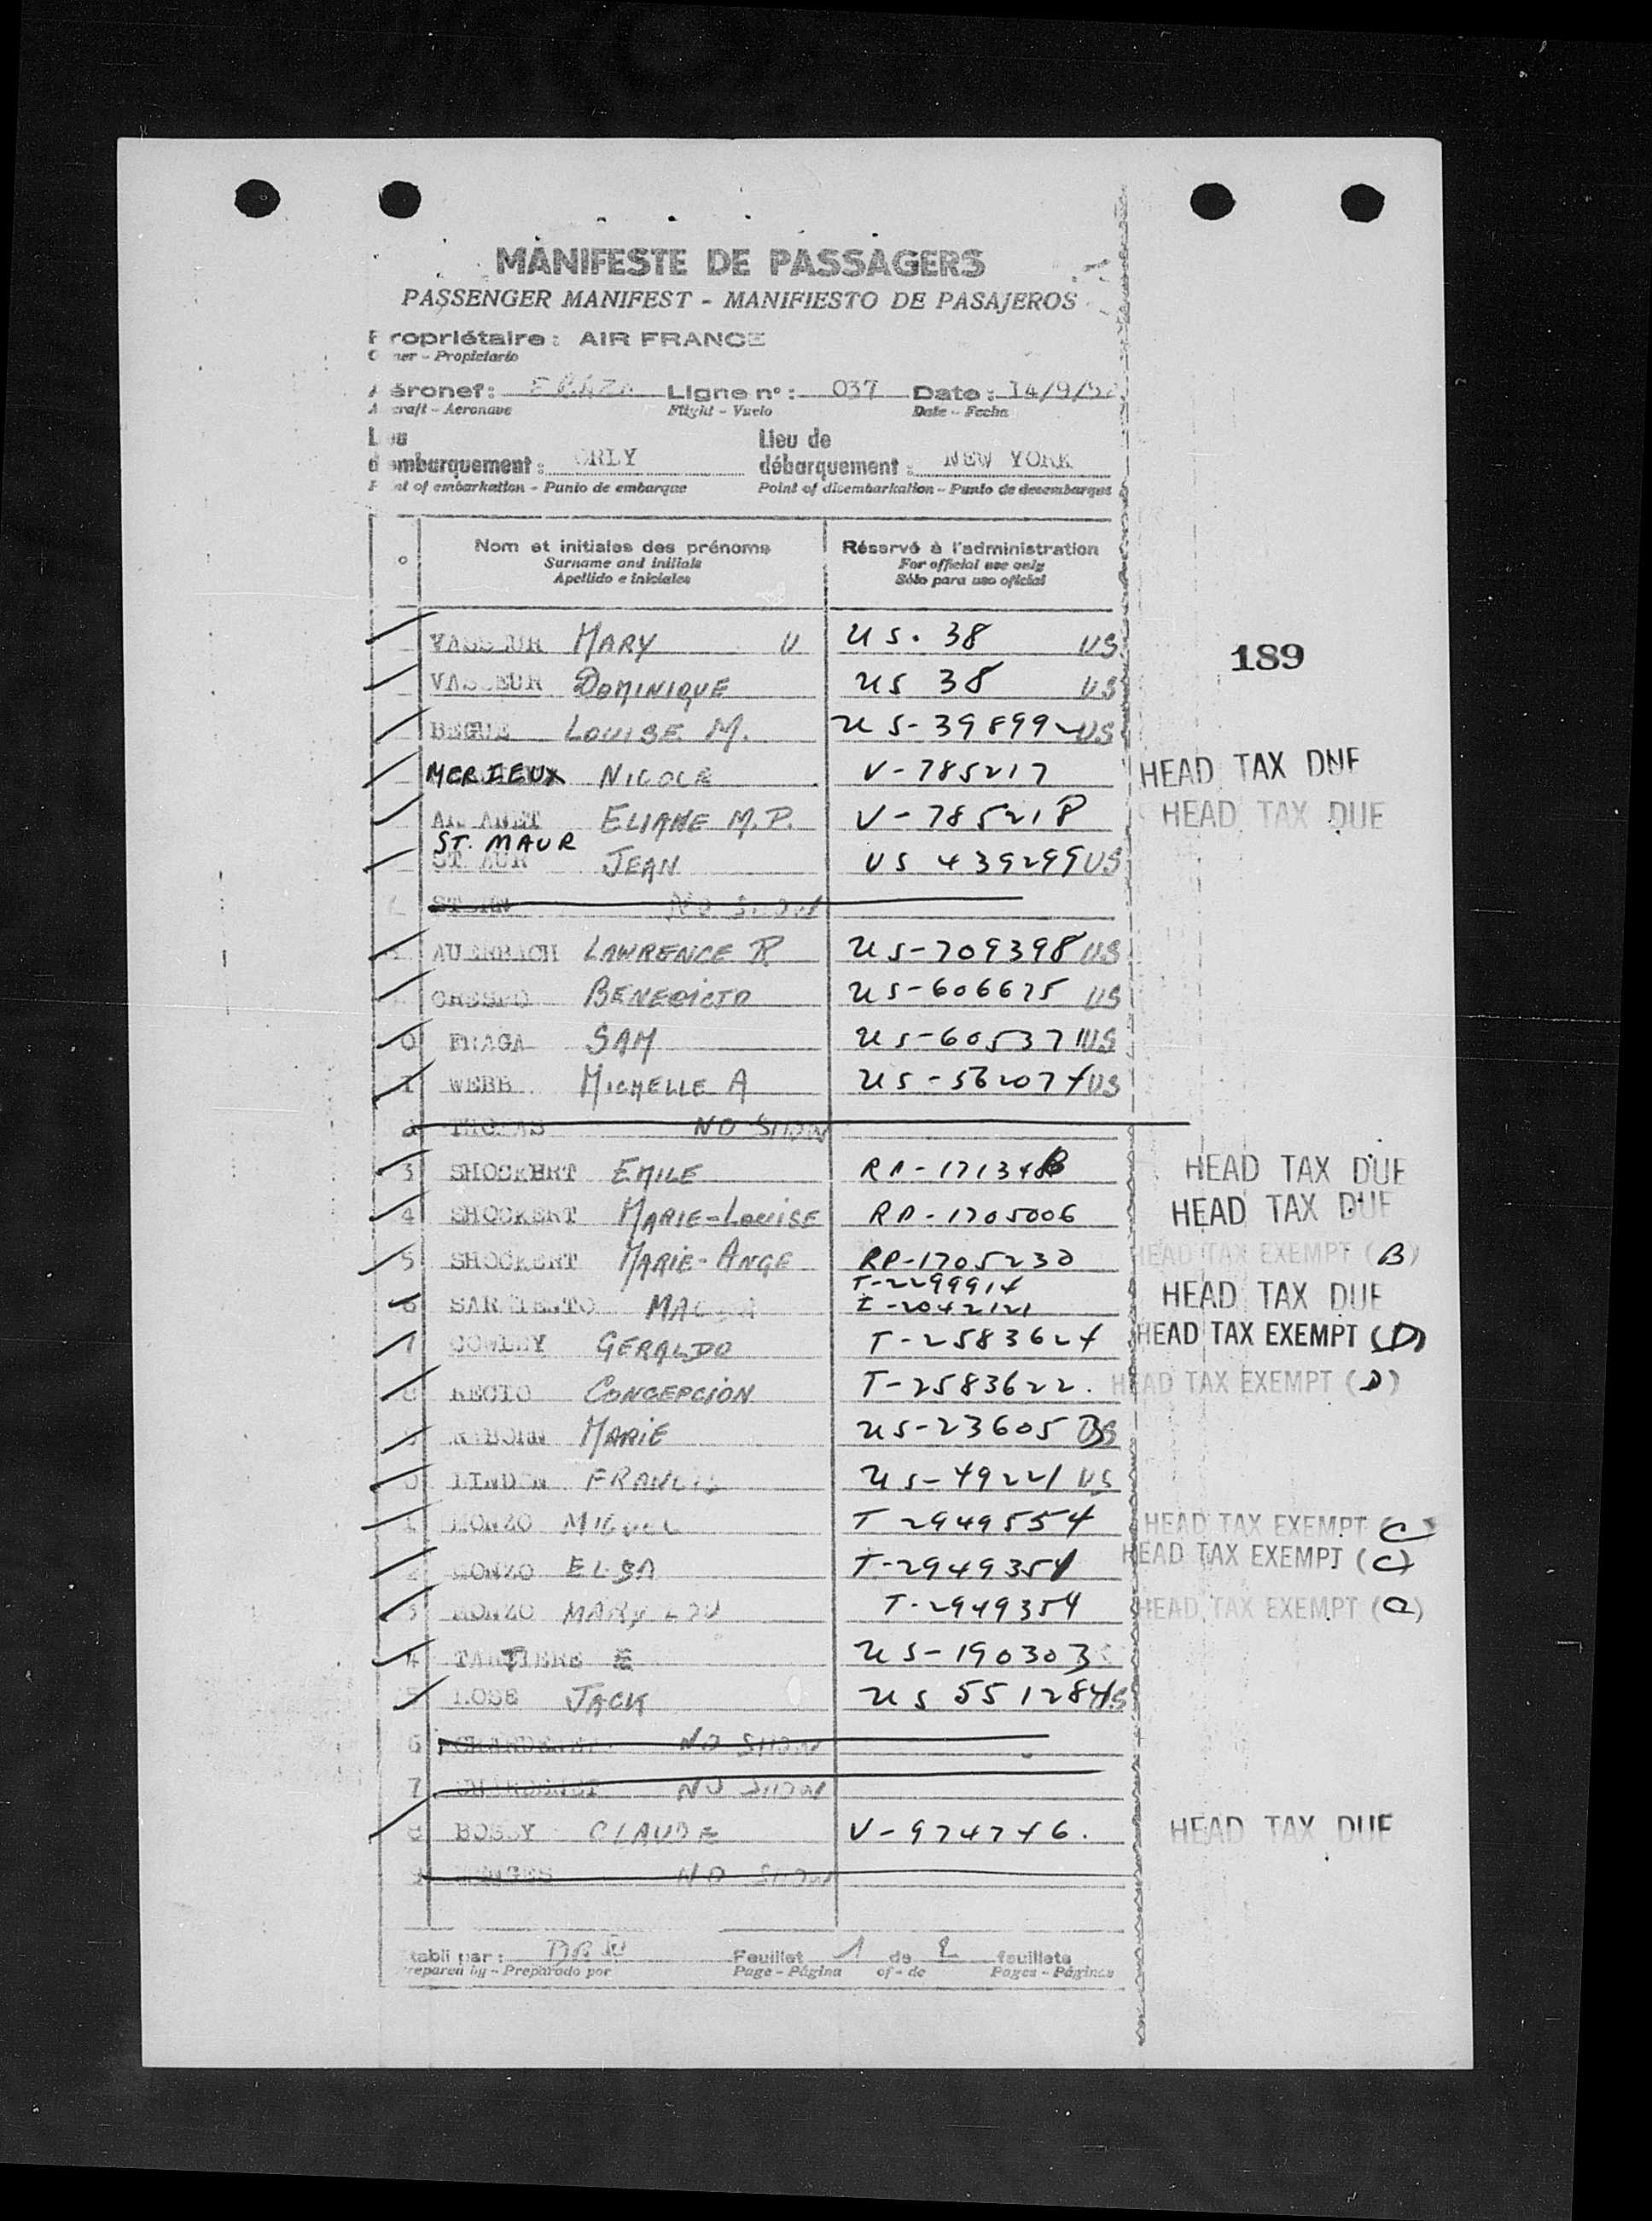 MANIFESTE DE PASSAGERS
PASSENGER MANIFEST - MANIFIESTO DE PASAJEROS
Propriétaire: AIR FRANCE
Owner - Propietario
Aéronef: Ligne n°: 037 Date: 14/9/52
Aircraft - Aeronave Flight - Vuelo Date - Fecha
Lieu Lieu de
d'embarquement: ORLY débarquement: NEW YORK
Point of embarkation - Punto de embarque Point of disembarkation - Punto de desembarque
Nom et initiales des prénoms Réservé à l'administration
Surname and initials For official use only
Apellido e iniciales Sólo para uso oficial
VASSEUR MARY U US. 38 US
189
VASSEUR DOMINIQUE US 38 US
BEGUE LOUISE M. US-39899 US
MERIEUX NICOLE V-785217 HEAD TAX DUE
ELIANE M.P. V-785218 HEAD TAX DUE
ST. MAUR
ST. MAUR JEAN US 439299 US
NO SHOW
AUERBACH LAWRENCE R US-709398 US
CRESPO BENEDICTO US-606675 US
0 FRAGA SAM US-605371 US
1 WEBB MICHELLE A US-562074 US
THOMAS NO SHOW
3 SHOCKERT EMILE RP-171348 HEAD TAX DUE
4 SHOCKERT MARIE-LOUISE RP-1705006 HEAD TAX DUE
5 SHOCKERT MARIE-ANGE RP-1705230 HEAD TAX EXEMPT (B)
T-2299914
6 SARMIENTO I-2042121 HEAD TAX DUE
7 GERALDO T-2583624 HEAD TAX EXEMPT (D)
8 RECTO CONCEPCION T-2583622. HEAD TAX EXEMPT (D)
MARIE US-23605 US
0 LINDON FRANCIS US-49221 US
1 MONZO MIGUEL T 2949554 HEAD TAX EXEMPT C
2 MONZO ELSA T-2949354 HEAD TAX EXEMPT (C)
3 MONZO MARY LOU T-2949354 HEAD TAX EXEMPT (C)
4 TARTIERE E US-190303
5 JACK US 551284 US
6 NO SHOW
7 NO SHOW
8 CLAUDE V-974746. HEAD TAX DUE
9 NO SHOW
Etabli par: Feuillet 1 de 2 feuillets
Prepared by - Preparado por Page - Página of - de Pages - Páginas